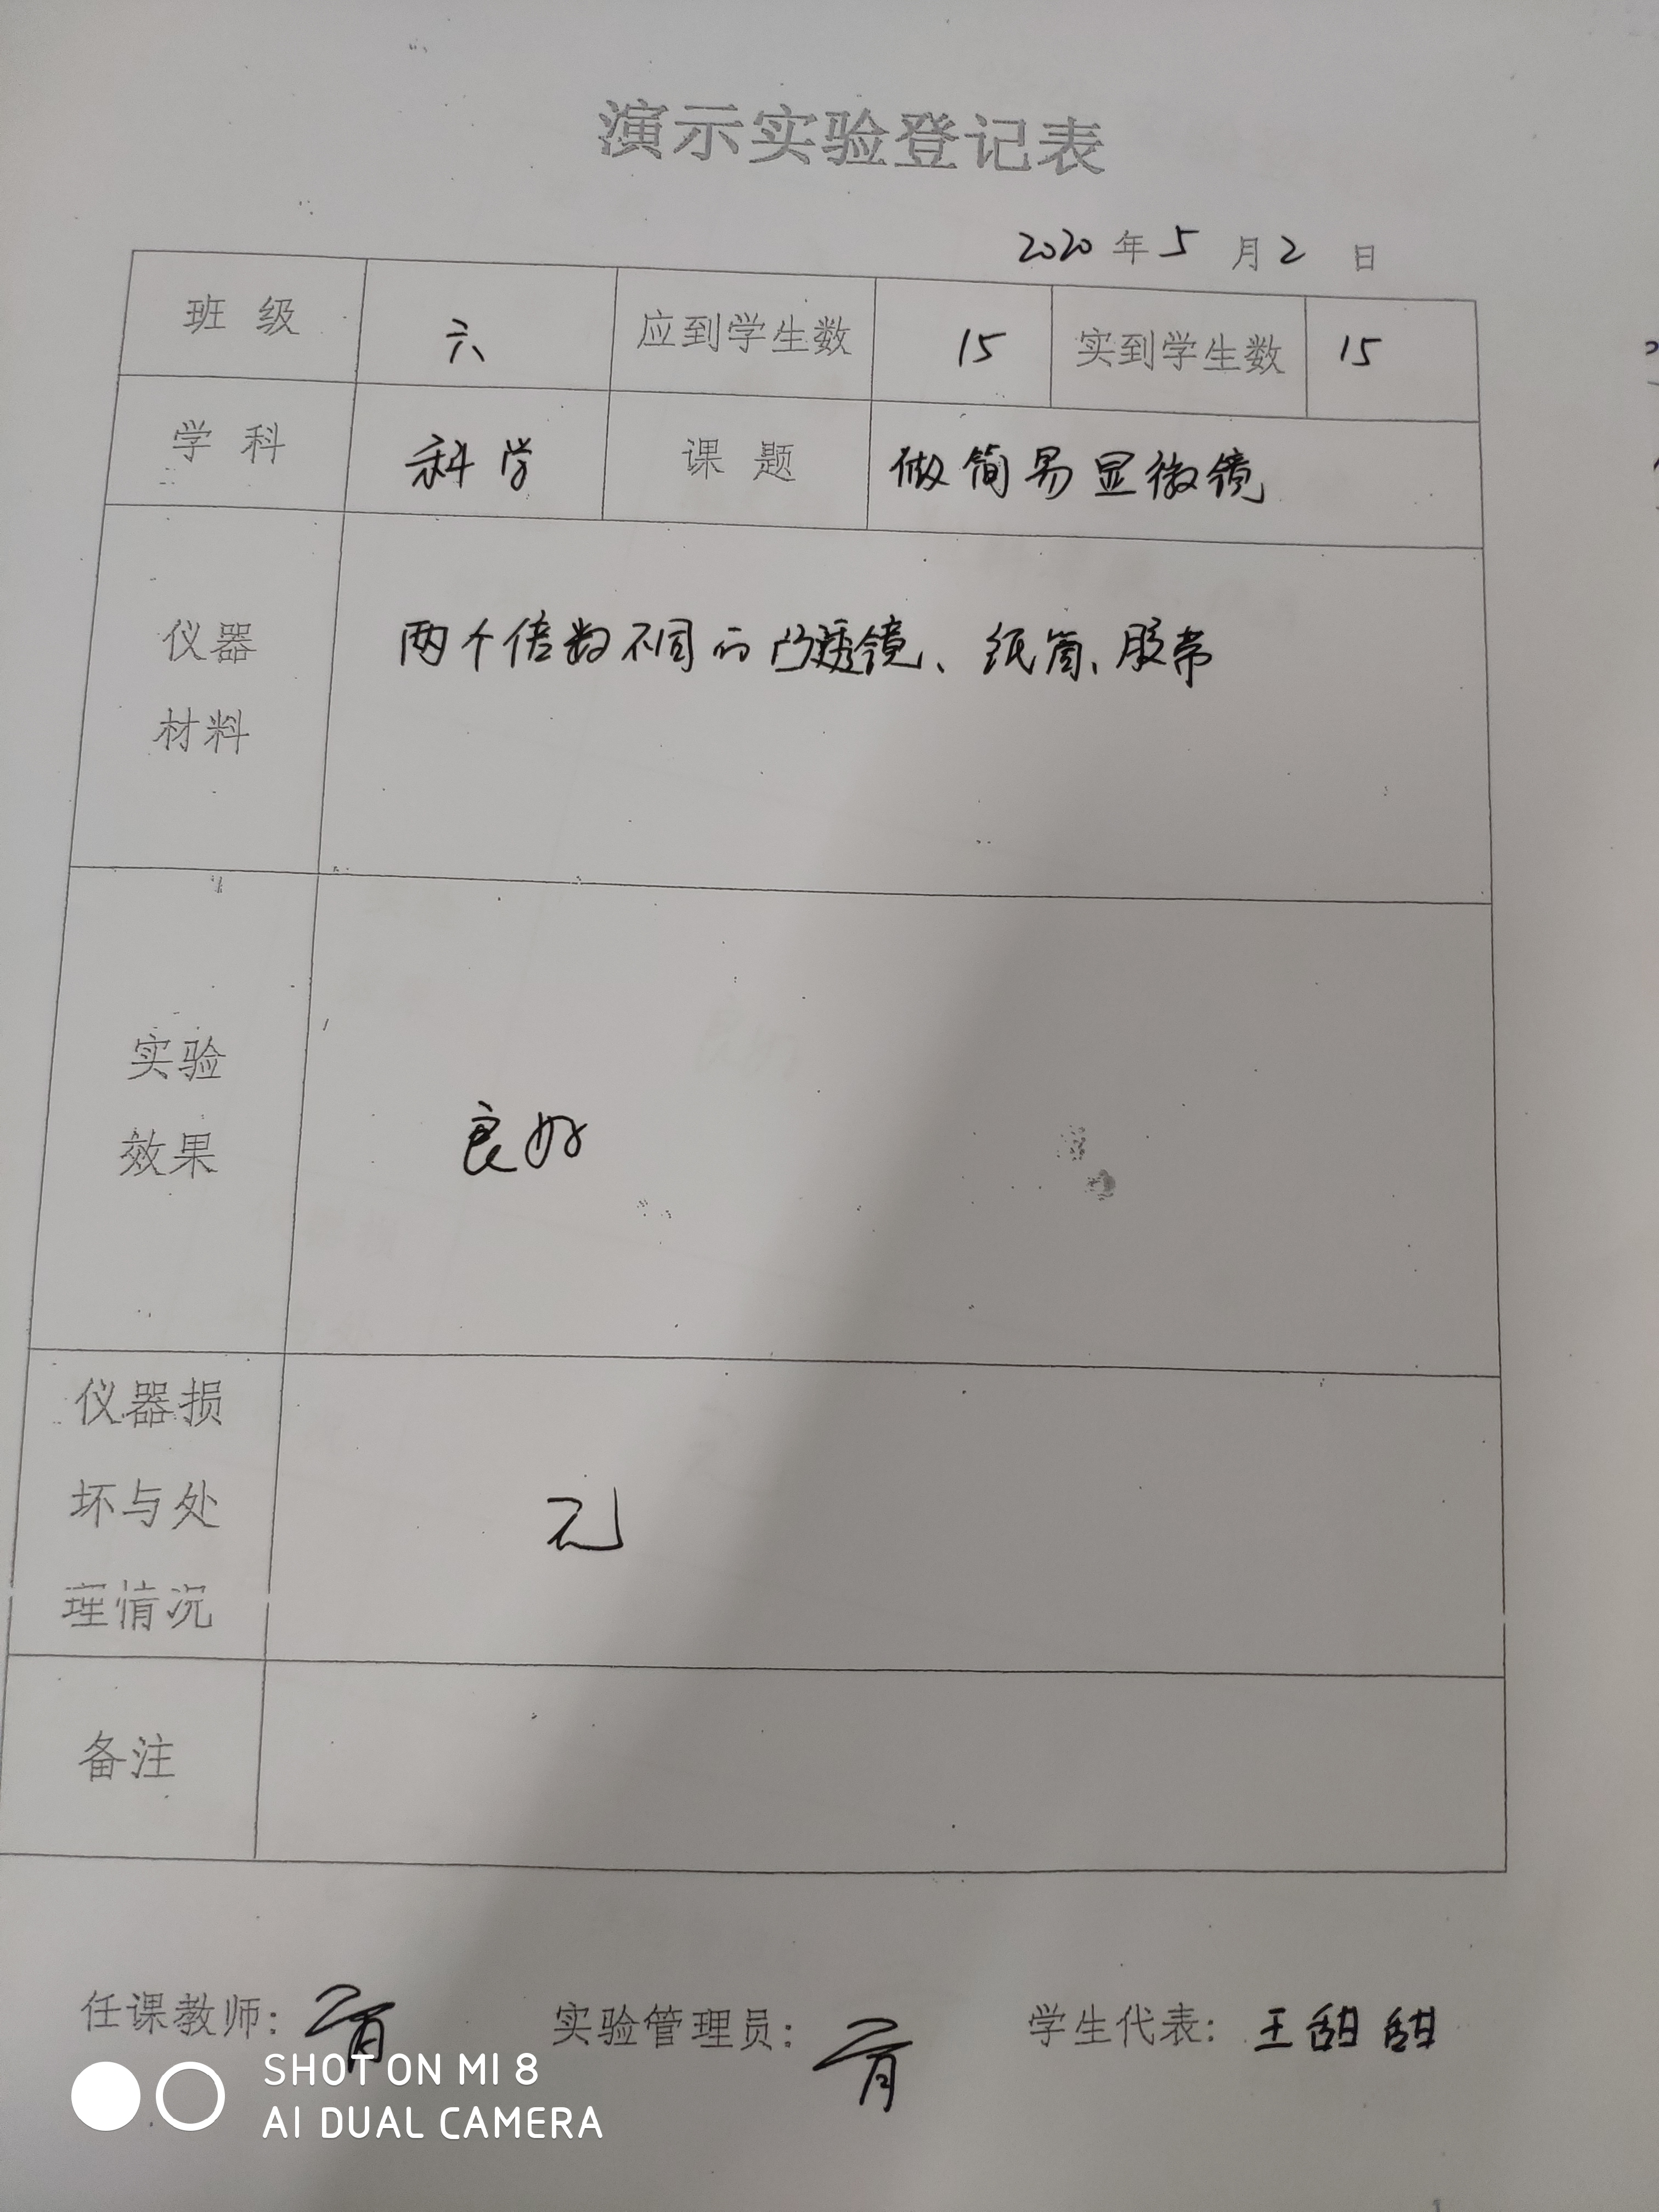 演示实验登记表
2020 年 5 月 2 日
班 级 六 应到学生数 15 实到学生数 15
学 科 科学 课 题 做简易显微镜
仪器
材料
两个倍数不同的凸透镜、纸筒、胶带
实验
效果
良好
仪器损
坏与处
理情况
无
备注
任课教师: 实验管理员: 学生代表: 王甜甜
SHOT ON MI 8
AI DUAL CAMERA